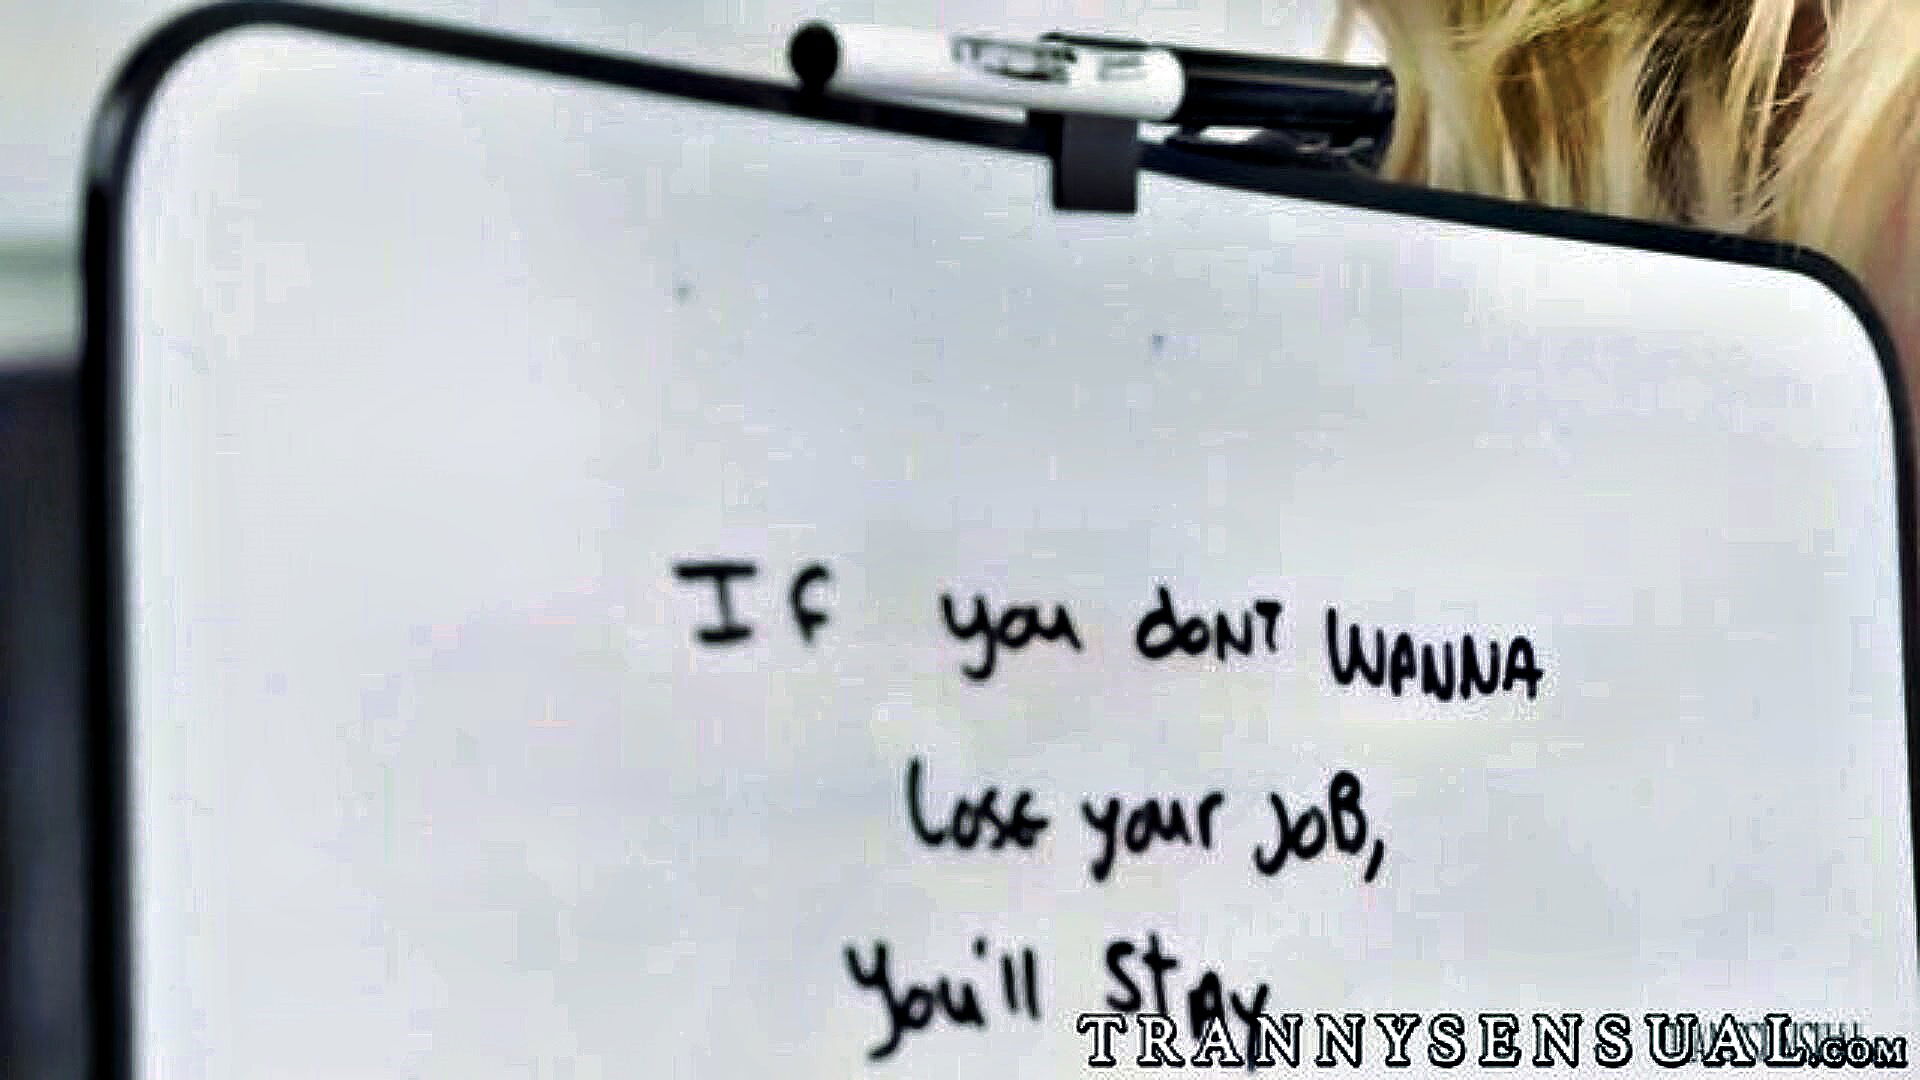 If you dont WANNA
lose your JOB,
you'll stay
TRANNYSENSUAL.COM